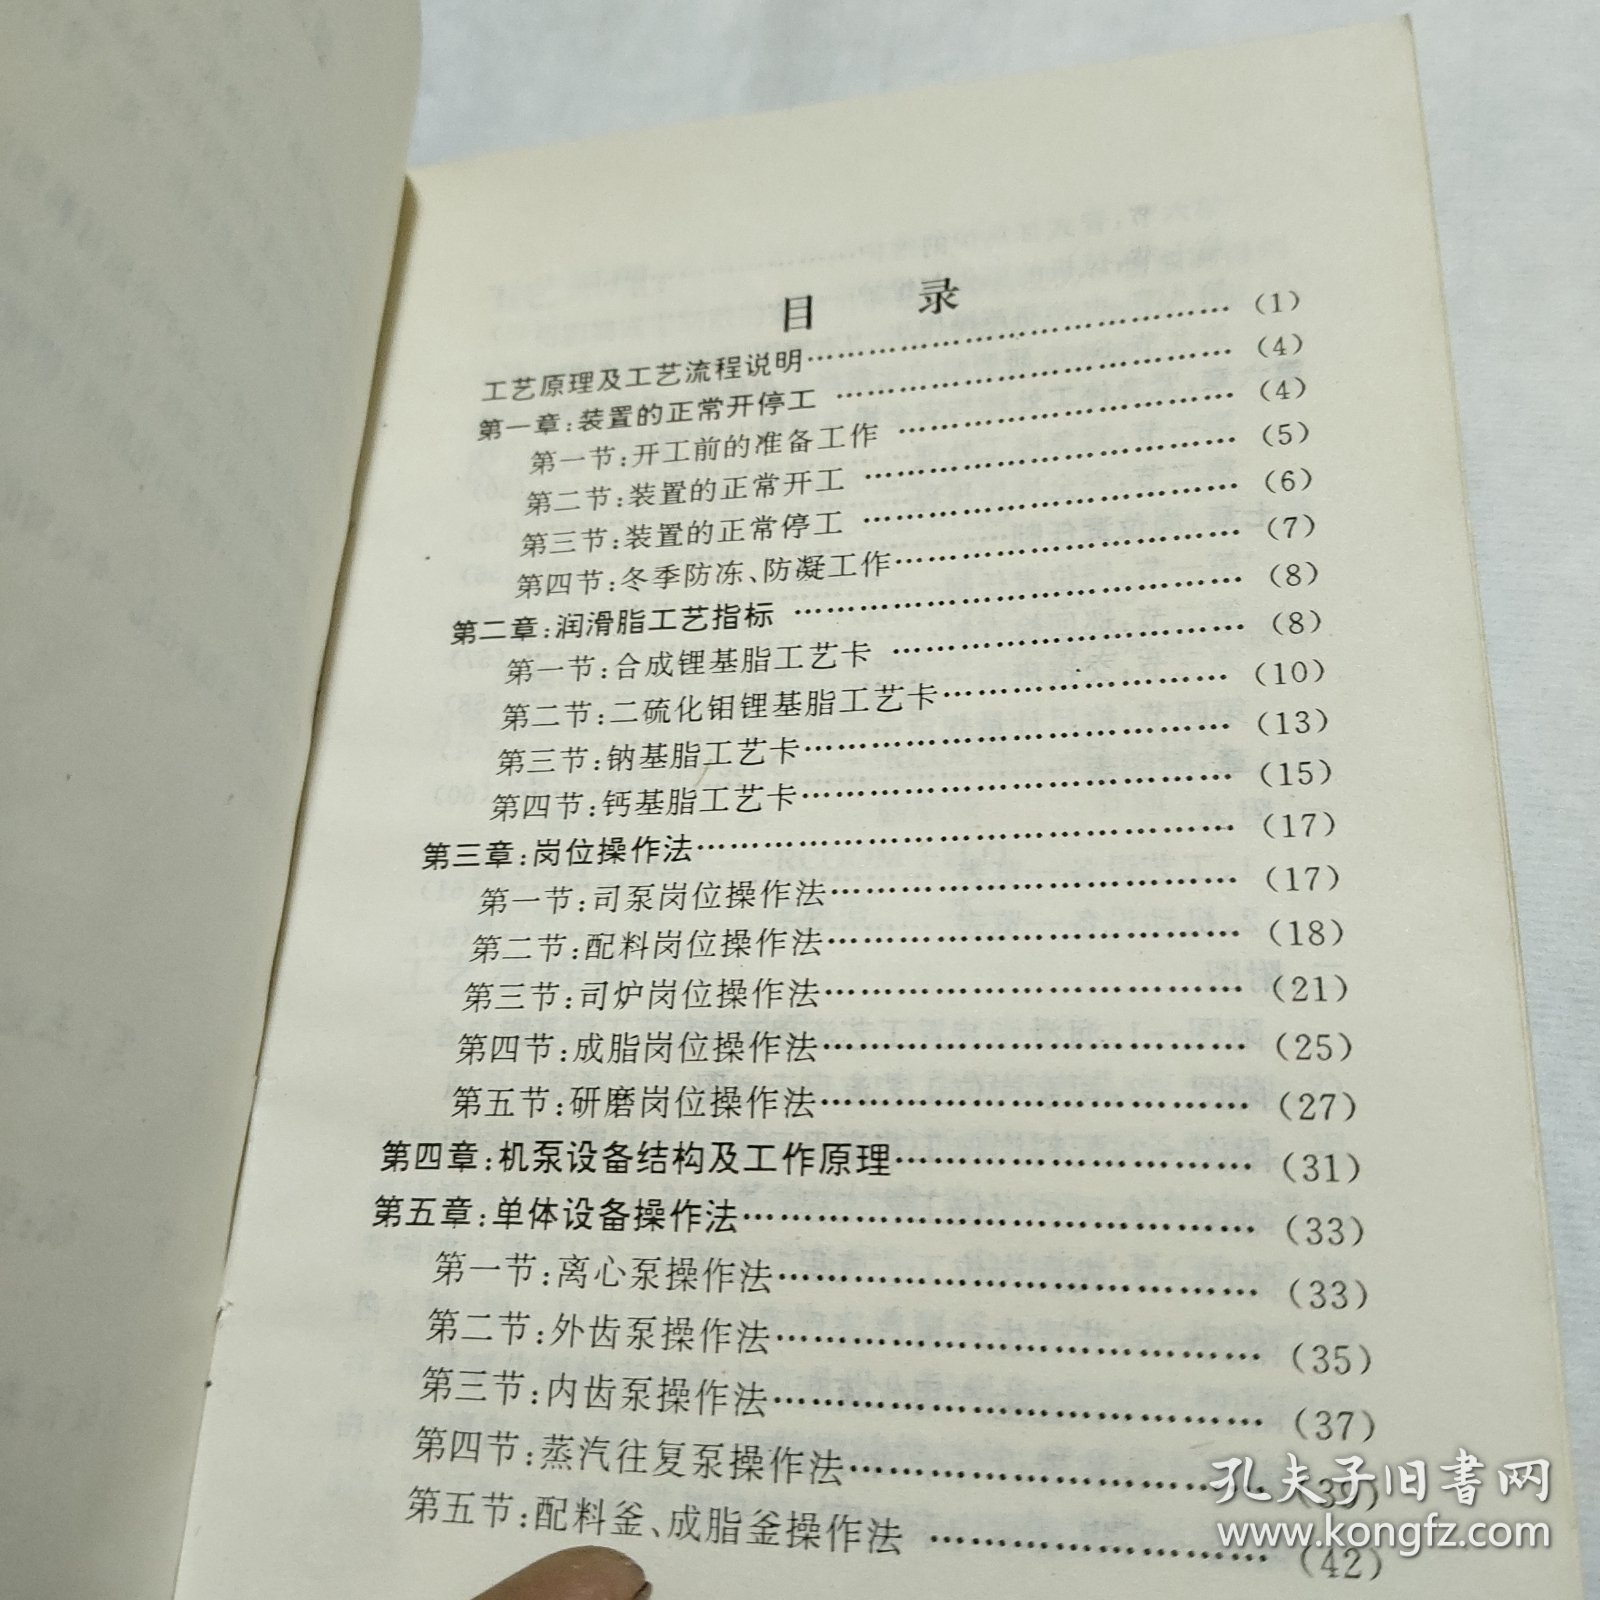 目 录
工艺原理及工艺流程说明……………………………………(1)
第一章:装置的正常开停工……………………………………(4)
第一节:开工前的准备工作……………………………………(4)
第二节:装置的正常开工……………………………………(5)
第三节:装置的正常停工……………………………………(6)
第四节:冬季防冻、防凝工作……………………………………(7)
第二章:润滑脂工艺指标……………………………………(8)
第一节:合成锂基脂工艺卡……………………………………(8)
第二节:二硫化钼锂基脂工艺卡……………………………………(10)
第三节:钠基脂工艺卡……………………………………(13)
第四节:钙基脂工艺卡……………………………………(15)
第三章:岗位操作法……………………………………(17)
第一节:司泵岗位操作法……………………………………(17)
第二节:配料岗位操作法……………………………………(18)
第三节:司炉岗位操作法……………………………………(21)
第四节:成脂岗位操作法……………………………………(25)
第五节:研磨岗位操作法……………………………………(27)
第四章:机泵设备结构及工作原理……………………………………(31)
第五章:单体设备操作法……………………………………(33)
第一节:离心泵操作法……………………………………(33)
第二节:外齿泵操作法……………………………………(35)
第三节:内齿泵操作法……………………………………(37)
第四节:蒸汽往复泵操作法……………………………………(39)
第五节:配料釜、成脂釜操作法……………………………………(42)
孔夫子旧书网
www.kongfz.com